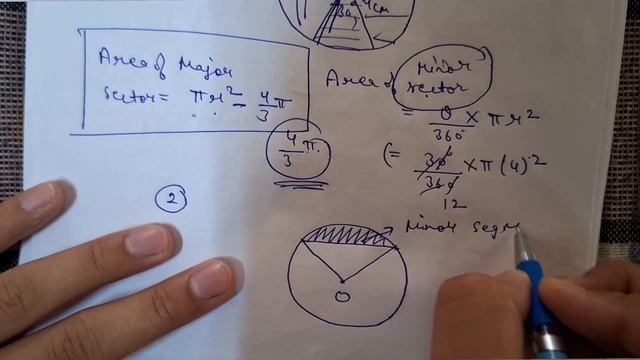 30°
4cm
Area of Major
Sector = πr² - 4/3 π
Area of Minor
Sector
= θ/360 × πr²
4/3 π.
(= 30/360 × π(4)²
12
2
Minor Segm
O